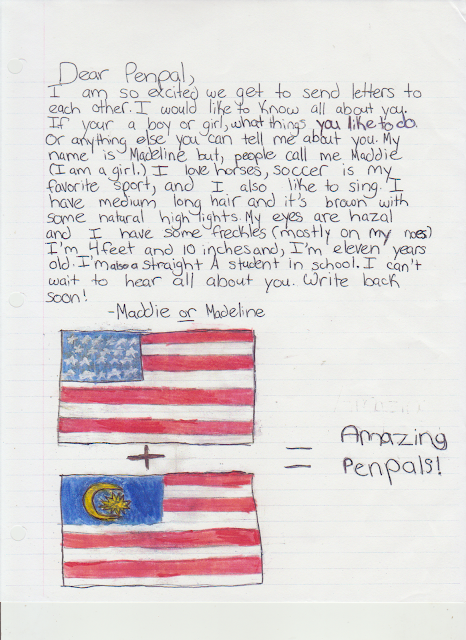 Dear Penpal,
I am so excited we get to send letters to
each other. I would like to know all about you.
If your a boy or girl, what things you like to do.
Or anything else you can tell me about you. My
name is Madeline but, people call me Maddie
(I am a girl.) I love horses, soccer is my
favorite sport, and I also like to sing. I
have medium long hair and it's brown with
some natural high lights. My eyes are hazal
and I have some freckles (mostly on my nose)
I'm 4 feet and 10 inches and, I'm eleven years
old. I'm also a straight A student in school. I can't
wait to hear all about you. Write back
soon!
-Maddie or Madeline
+
= Amazing
Penpals!